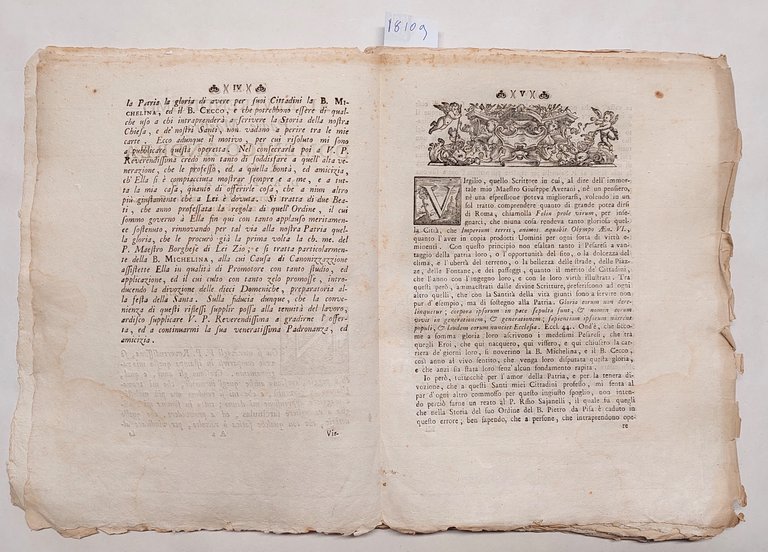 18109
IV
la Patria la gloria di avere per suoi Cittadini la B. MI-
CHELINA, ed il B. CECCO, e che potrebbono essere di qual-
che uso a chi intraprenderà a scrivere la Storia della nostra
Chiesa, e de' nostri Santi, non vadano a perire tra le mie
carte. Ecco adunque il motivo, per cui risoluto mi sono
a pubblicare questa operetta. Nel consecrarla poi a V. P.
Reverendissima credo non tanto di soddisfare a quell' alta ve-
nerazione, che le professo, ed a quella bontà, ed amicizia,
ch' Ella si è compiaciuta mostrar sempre e a me, e a tut-
ta la mia casa, quanto di offerirle cosa, che a niun altro
più giustamente che a Lei è dovuta. Si tratta di due Bea-
ti, che anno professata la regola di quell' Ordine, il cui
sommo governo à Ella fin qui con tanto applauso meritamen-
te sostenuto, rinnovando per tal via alla nostra Patria quel-
la gloria, che le procurò già la prima volta la ch. me. del
P. Maestro Borghesi di Lei Zio; e si tratta particolarmen-
te della B. MICHELINA, alla cui Causa di Canonizzazione
assistette Ella in qualità di Promotore con tanto studio, ed
applicazione, ed il cui culto con tanto zelo promosse, intro-
ducendo la devozione delle dieci Domeniche, preparatoria al-
la festa della Santa. Sulla fiducia dunque, che la conve-
nienza di questi riflessi supplir possa alla tenuità del lavoro,
ardisco supplicare V. P. Reverendissima a gradirne l' offer-
ta, ed a continuarmi la sua veneratissima Padronanza, ed
amicizia.
Vir-
V
VIrgilio, quello Scrittore in cui, al dire dell' immor-
tale mio Maestro Giuseppe Averani, nè un pensiero,
nè una espressione poteva migliorarsi, volendo in un
sol tratto comprendere quanto di grande potea dirsi
di Roma, chiamolla Felix prole virum, per inse-
gnarci, che niuna cosa rendeva tanto gloriosa quel-
la Città, che Imperium terris, animos aequabit Olympo Æn. VI.,
quanto l' aver in copia prodotti Uomini per ogni sorta di virtù e-
minenti. Con questo principio non esaltan tanto i Pesaresi a van-
taggio della patria loro, o l' opportunità del sito, o la dolcezza del
clima, e l' ubertà del terreno, o la bellezza delle strade, delle Piaz-
ze, delle Fontane, e dei passeggi, quanto il merito de' Cittadini,
che l' anno con l' ingegno loro, e con le loro virtù illustrata. Tra
questi però, ammaestrati dalle divine Scritture, preferiscono ad ogni
altro quelli, che con la Santità della vita giunti sono a servire non
pur d' esempio, ma di sostegno alla Patria. Gloria eorum non dere-
linquetur; corpora ipsorum in pace sepulta sunt, & nomen eorum
vivit in generationem, & generationem; sapientiam ipsorum narrent
populi, & laudem eorum nunciet Ecclesia. Eccl. 44. Ond' è, che sicco-
me a somma gloria loro ascrivono i medesimi Pesaresi, che tra
quegli Eroi, che qui nacquero, qui vissero, e qui chiusero la car-
riera de' giorni loro, si noverino la B. Michelina, e il B. Cecco,
così anno al vivo sentito, che venga loro disputata questa gloria,
e che anzi sia stata loro senz' alcun fondamento rapita.
Io però, tuttocchè per l' amor della Patria, e per la tenera di-
vozione, che a questi Santi miei Cittadini professo, mi senta al
par d' ogni altro commosso per questo ingiusto spoglio, non inten-
do perciò farne un reato al P. Rmo Sajanelli, il quale fu quegli
che nella Storia del suo Ordine del B. Pietro da Pisa è caduto in
questo errore; ben sapendo, che a persone, che intraprendono ope-
re